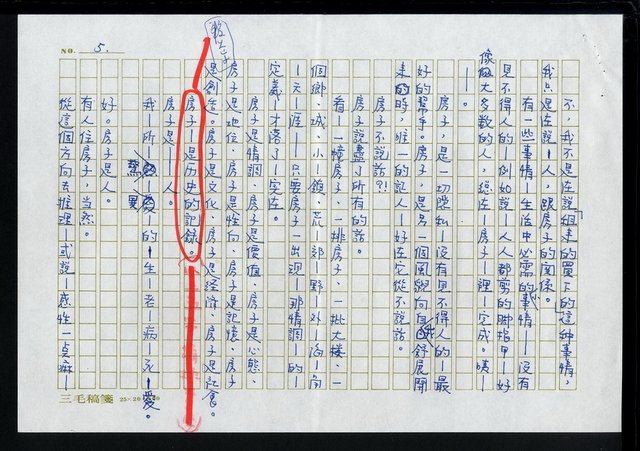 NO. 5.
不，我不是在說「租來的買下的」這种事情，
我只是在說—人，跟房子的關係。
有一些事情—生活中必需的事情—沒有
見不得人的—例如說—人人都剪的腳指甲—好
像大多數的人，總在—房子—裡—完成。唉—
—。
房子，是一切隱私—沒有見不得人的—最
好的幫手。房子，是另一個風貌向自我舒展開
來的時，唯一的証人—好在它從不說話。
房子不說話？！
房子說盡了所有的話。
看—一幢房子、一排房子、一批大楼、一
個鄉、城、小—鎮、荒—郊—野—外—海—角
—天—涯—只要房子—出現—那情調—的—
定義—才落了—实在。
房子是情調、房子是價值、房子是心態、
房子是地位、房子是性向、房子是記憶、房子
是創造。房子是文化、房子是經济、房子是社會。
放大字
房子—是历史的記錄。
房子是—人。
我—所—的—生—老—病—死—愛。
好。房子是人。
有人住房子，当然。
從這個方向去推理—或說—感性一点麻—
三毛稿箋 25×20